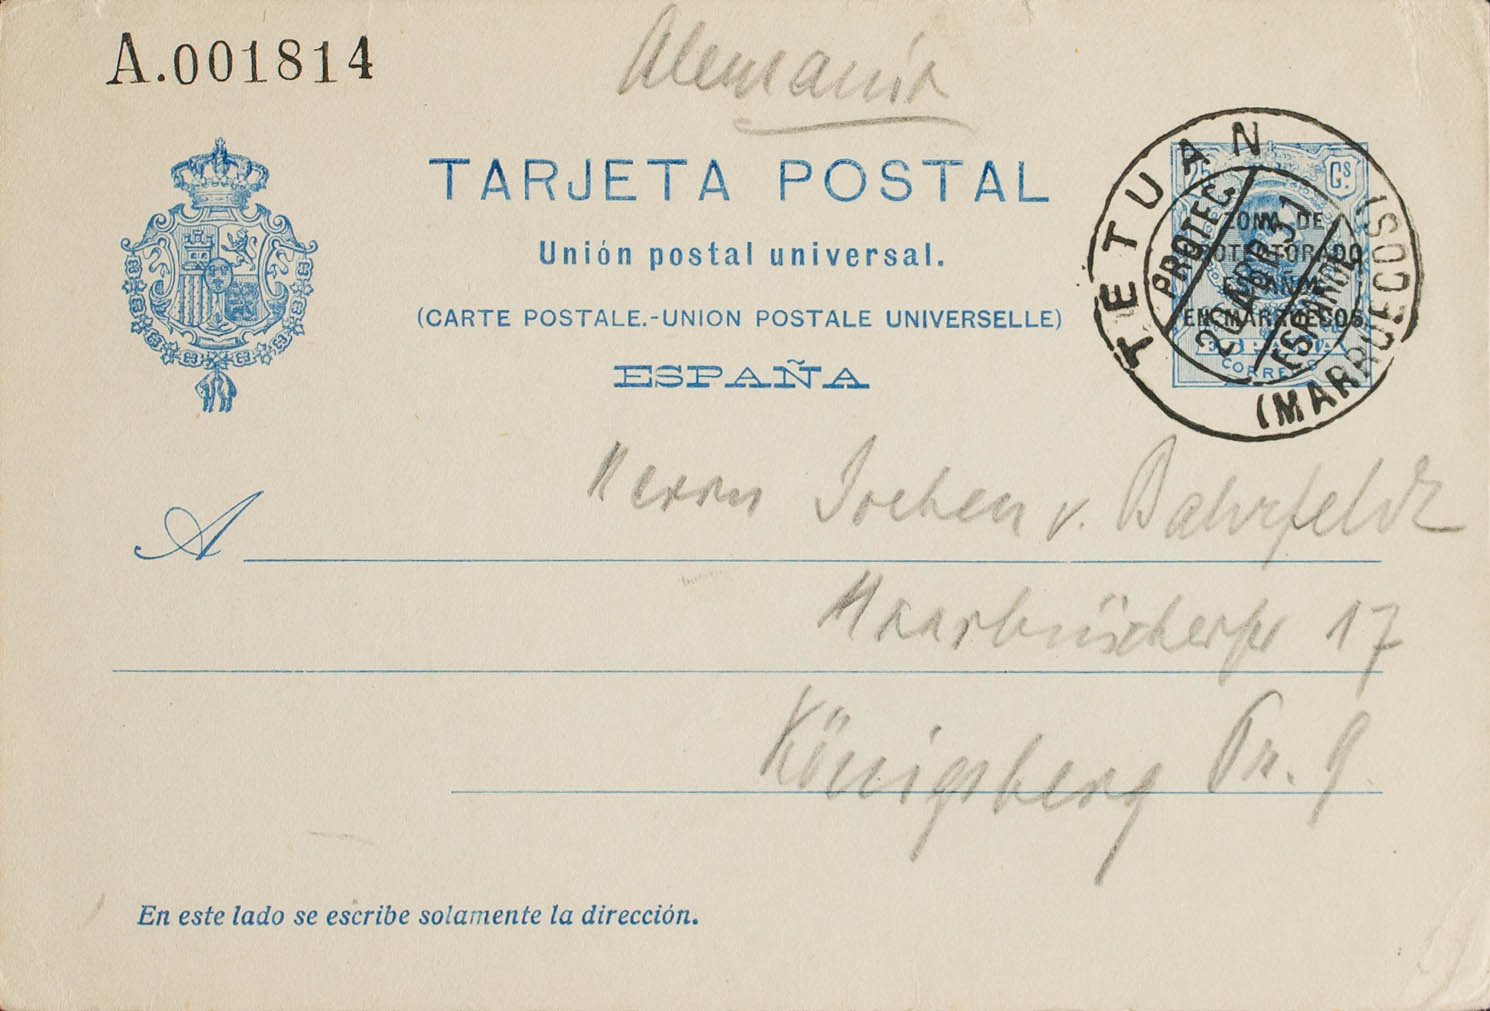 A.001814
Alemania
TARJETA POSTAL
Unión postal universal.
(CARTE POSTALE.-UNION POSTALE UNIVERSELLE)
ESPAÑA
Cs.
ZONA DE
PROTECTORADO
ESPAÑOL
EN MARRUECOS
CORREOS
TETUAN
(MARRUECOS)
PROTEC.
20 ABR 31
Herrn Jochen v. Bahrfeldt
A
17
Königsberg Pr. 9
En este lado se escribe solamente la dirección.